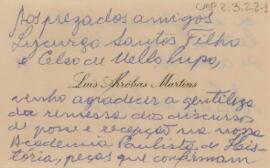 CMP 2.3.22-1
Aos prezados amigos
Lycurgo Santos Filho
e Celso de Mello Pupo,
Luís Arrôbas Martins
venho agradecer a gentileza
da remessa dos discursos
de posse e recepção na nossa
Academia Paulista de His-
tória, peças que confirmam